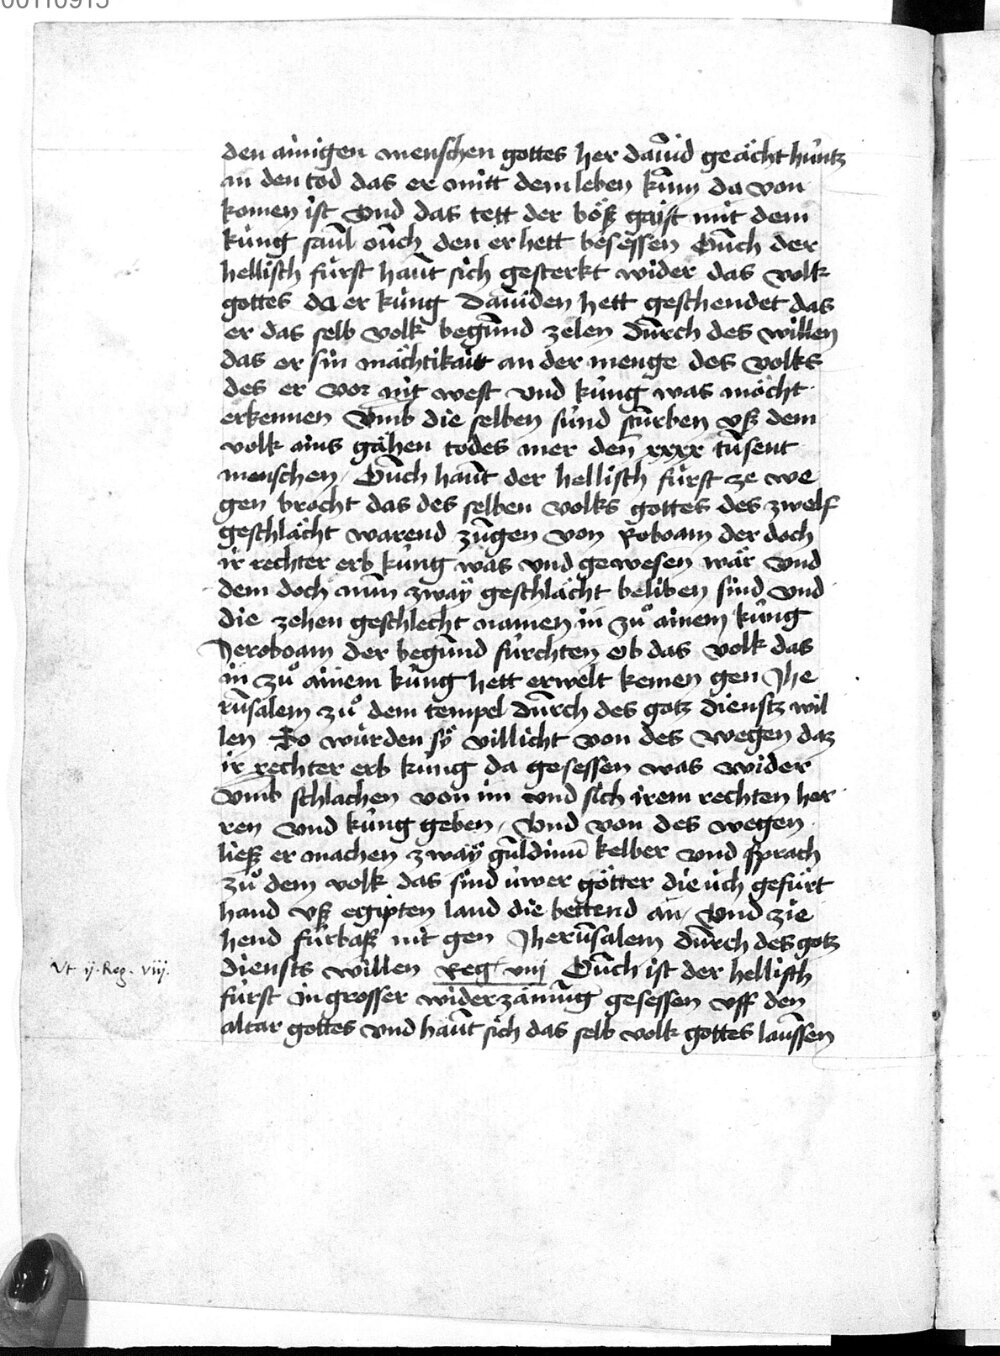 00110915
den ainigen menschen gottes her dauid geächt huntz
an den tod das er mitt dem leben kum da von
komen ist Vnd das tett der böß gaist mit dem
küng saul ouch den er hett besessen Ouch der
hellisch fürst haut sich gesterkt wider das volk
gottes do er küng Dauiden hett geschendet das
er das selb volk begund zelen durch des willen
das er sin mächtikait an der menge des volks
des er vor nit west vnd küng was möcht
erkennen Vmb die selben sünd sturben vß dem
volk ains gähen todes mer den xxxx tusent
menschen / Ouch haut der hellisch fürst ze we
gen brocht das des selben volks gottes des zwelf
geschlächt warend zugen von Roboam der doch
ir rechter erb küng was vnd gewesen wär vnd
dem doch nun zway geschlächt beliben sind vnd
die zehen geschlecht namen in zů ainem küng
Jeroboam der begund fürchten ob das volk das
in zů ainem küng hett erwelt kemen gen Jhe
rusalem zů dem tempel durch des gotz dienstz wil
len So würden sÿ villicht von des wegen daz
ir rechter erb küng da gesessen was wider
vmb schlachen von im vnd sich irem rechten her
ren vnd küng geben / Vnd von des wegen
ließ er machen zwaÿ guldinu kelber vnd sprach
zů dem volk das sind üwer götter die üch gefürt
hand vß egipten land die bettend an / Vnd zie
hend fürbaß nit gen Jherusalem durch des gotz
diensts willen Reg viij Ouch ist der hellisch
Vt ij. Reg. viij.
fürst in grosser widerzämung gesessen vff den
altar gottes vnd haut sich das selb volk gottes laussen